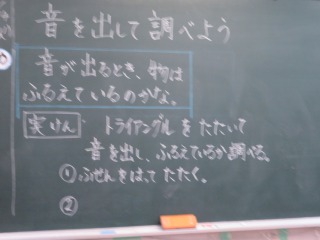 音を出して調べよう
音が出るとき、物は
ふるえているのかな。
実けん トライアングルをたたいて
音を出し、ふるえているか調べる。
①ふせんをはってたたく。
②